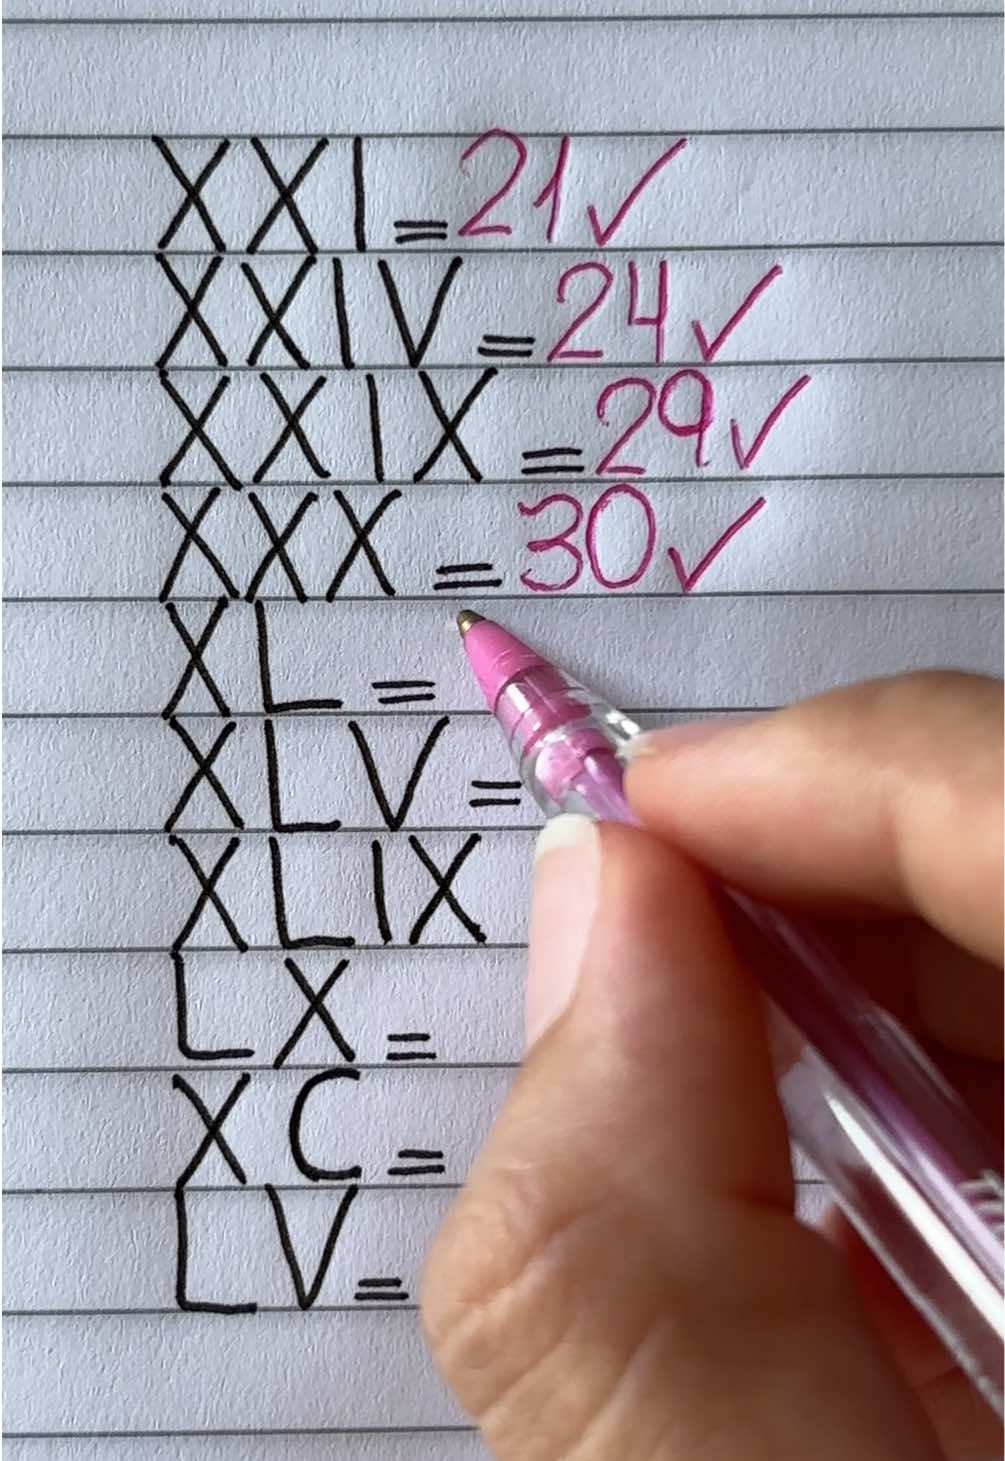 XXI = 21 ✓
XXIV = 24 ✓
XXIX = 29 ✓
XXX = 30 ✓
XL =
XLV =
XLIX
LX =
XC =
LV =